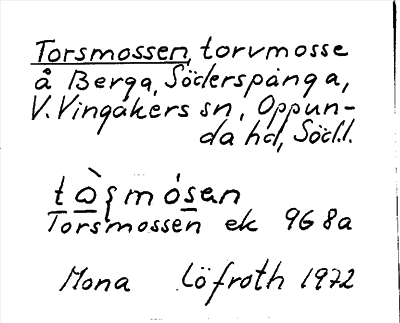 Torsmossen, torvmosse
å Berga, Söderspånga,
V. Vingåkers sn, Oppun-
da hd, Södl.
tòʂmósan
Torsmossen ek 968a
Mona Löfroth 1972